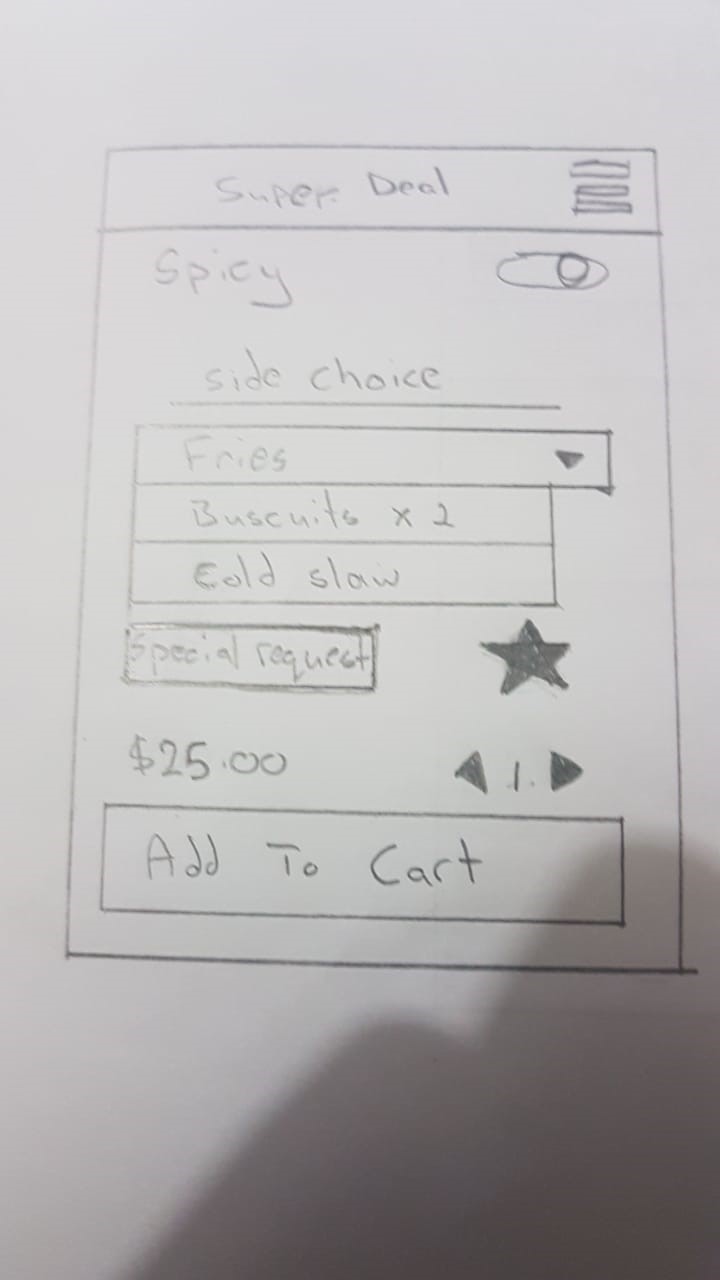 Super Deal
Spicy
side choice
Fries
Buscuits x 2
Cold slaw
Special request
$25.00
1.
Add To Cart